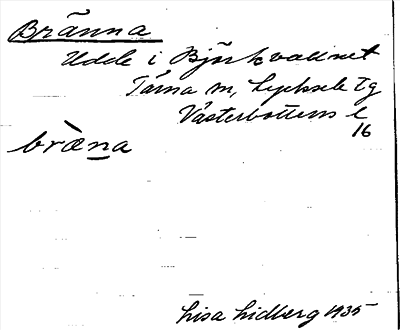 Bränna
Udde i Björkvattnet
Tärna sn, Lycksele tg
Västerbottens l
16
bræ̀na
Lisa Lidberg 1935